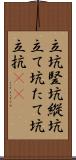 立坑竪坑縦坑
立て坑たて坑
立抗